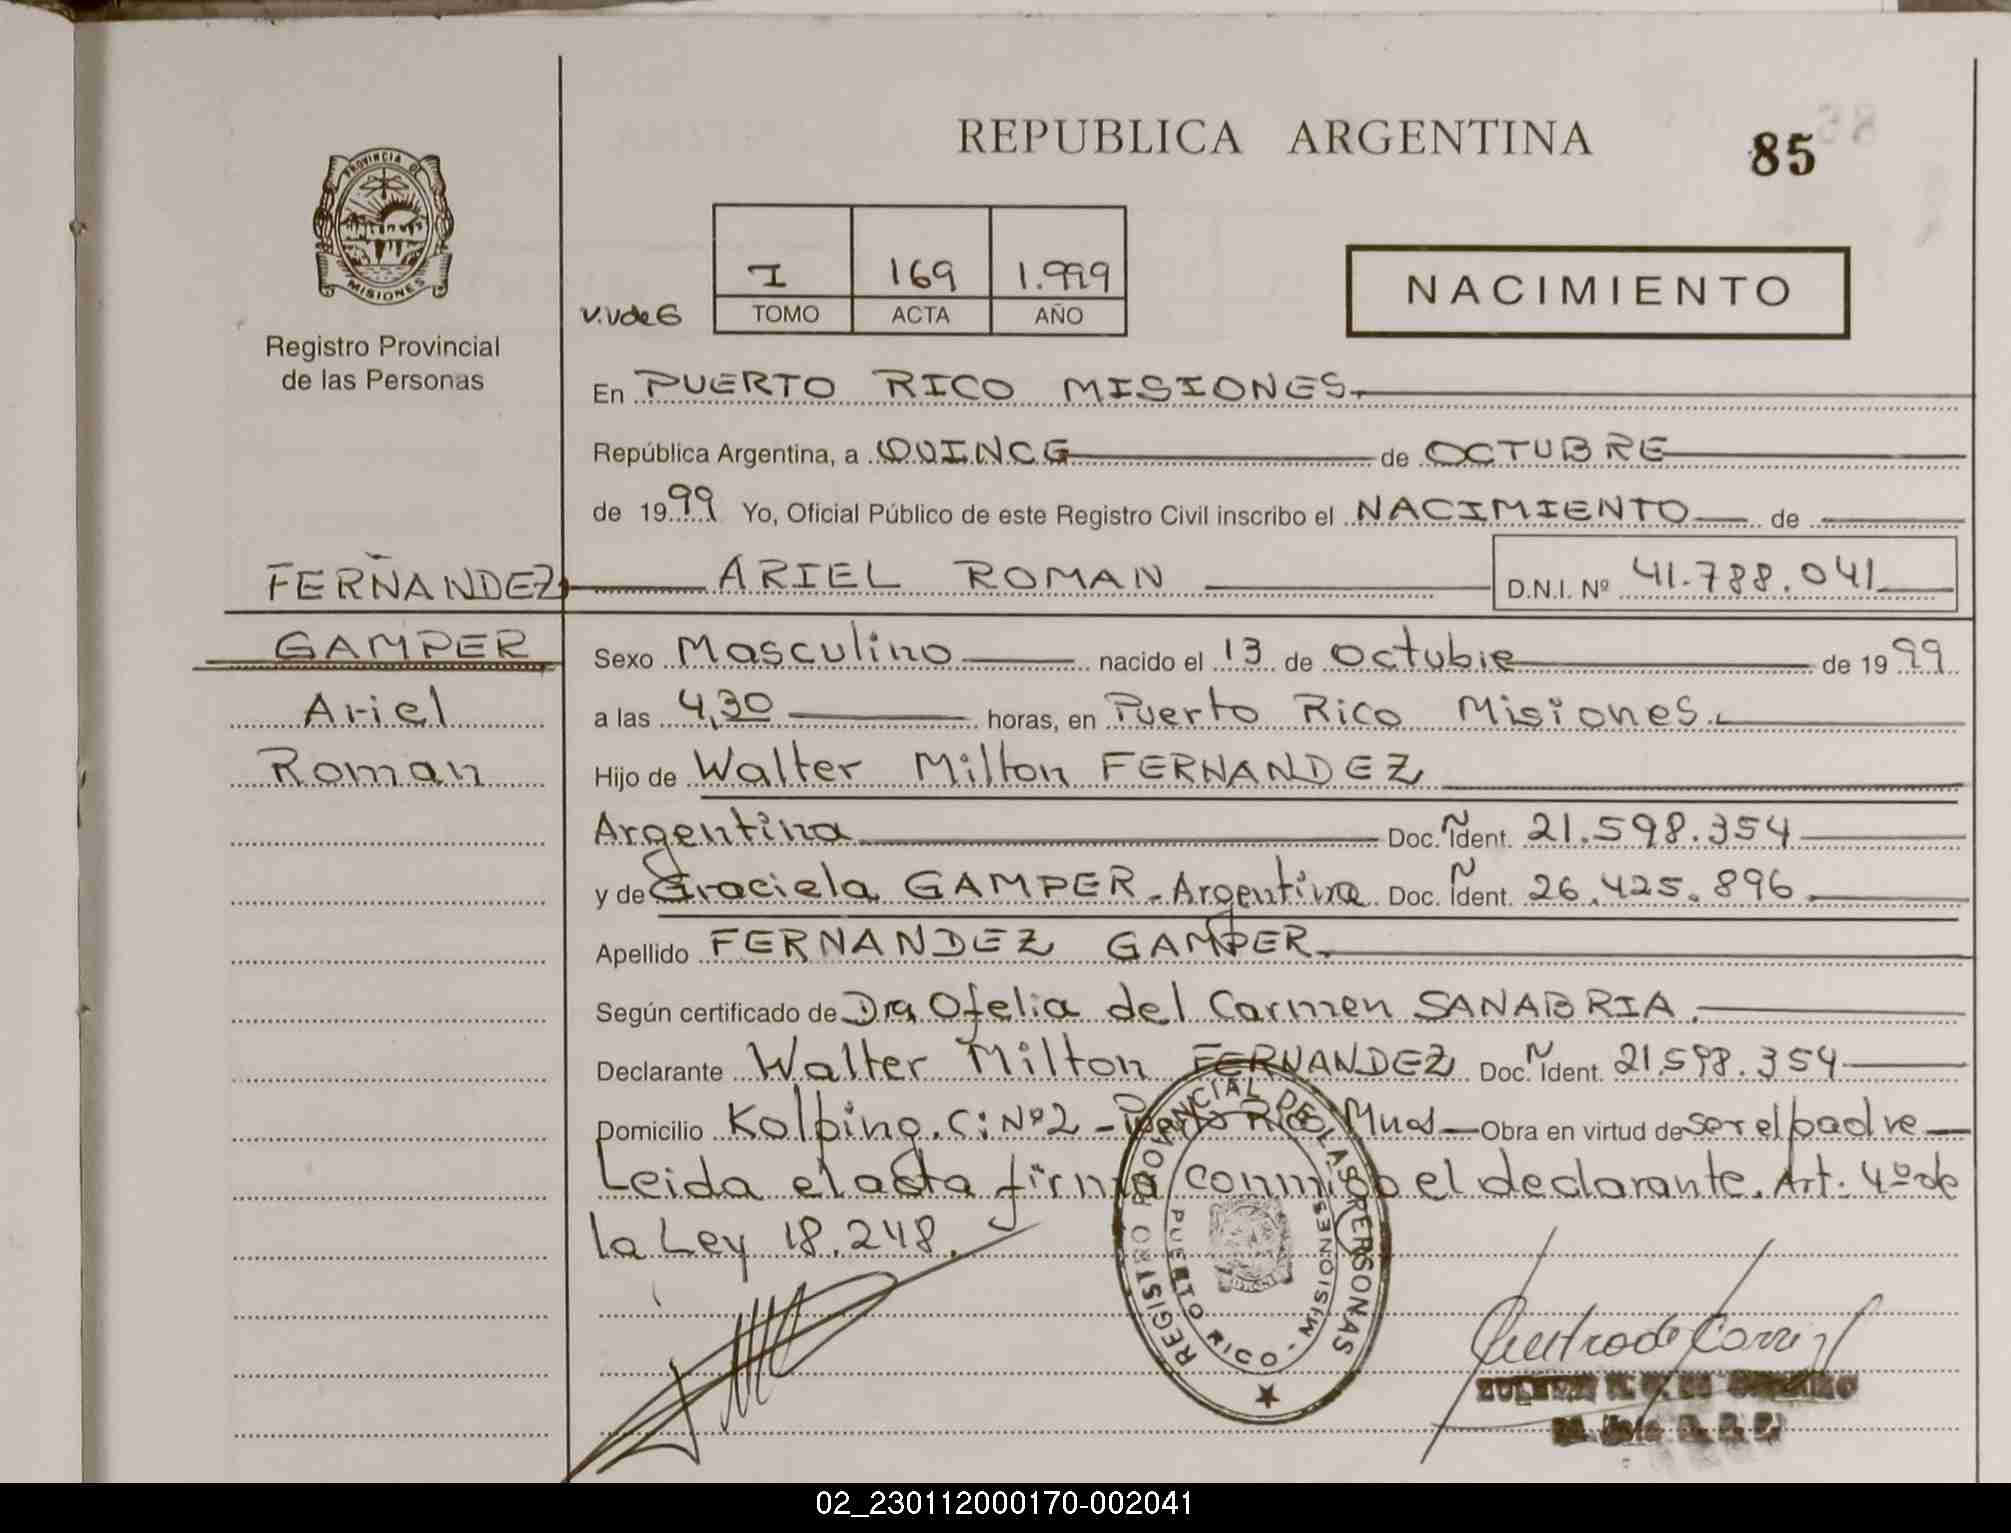 REPUBLICA ARGENTINA
85
PROVINCIA DE
MISIONES
Registro Provincial
de las Personas
I 169 1.999
V.V de G TOMO ACTA AÑO
NACIMIENTO
En PUERTO RICO MISIONES.
República Argentina, a QUINCE de OCTUBRE
de 1999 Yo, Oficial Público de este Registro Civil inscribo el NACIMIENTO de
FERNANDEZ ARIEL ROMAN D.N.I. Nº 41.788.041
GAMPER Sexo Masculino nacido el 13 de Octubre de 1999
Ariel a las 4,30 horas, en Puerto Rico Misiones.
Roman Hijo de Walter Milton FERNANDEZ
Argentina Doc. Ident. 21.598.354
y de Graciela GAMPER - Argentina Doc. Ident. 26.425.896
Apellido FERNANDEZ GAMPER.
Según certificado de Dra Ofelia del Carmen SANABRIA.
Declarante Walter Milton FERNANDEZ Doc. Ident. 21.598.354
Domicilio Kolping. C: Nº 2 - Puerto Rico Mnes Obra en virtud de ser el padre
Leida el acta firma conmigo el declarante. Art. 4º de
la Ley 18.248.
REGISTRO PROVINCIAL DE LAS PERSONAS
PUERTO RICO - MISIONES
02_230112000170-002041